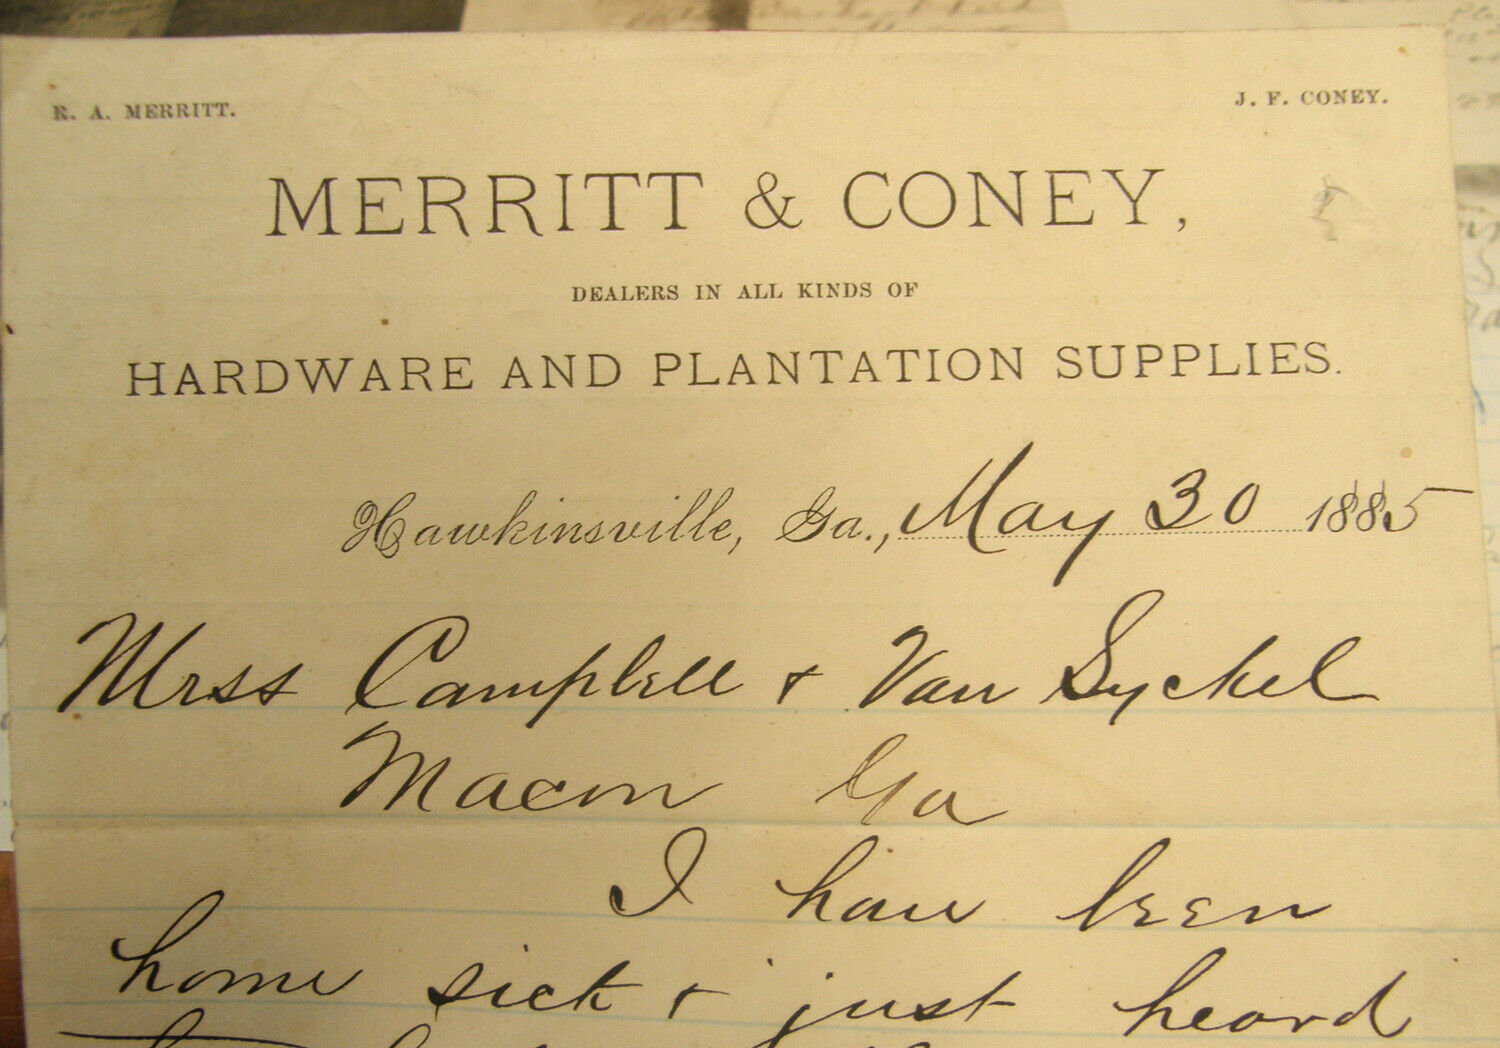 R. A. MERRITT. J. F. CONEY.
MERRITT & CONEY,
DEALERS IN ALL KINDS OF
HARDWARE AND PLANTATION SUPPLIES.
Hawkinsville, Ga., May 30 1885
Mrss Campbell & Van Syckel
Macon Ga
I have been
home sick & just heard